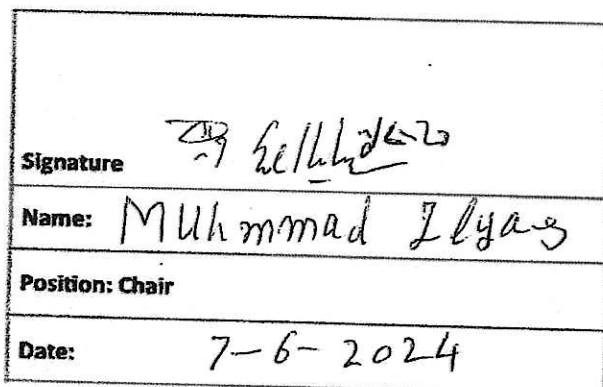 Signature
Name: MUhmmad Ilyas
Position: Chair
Date: 7-6-2024